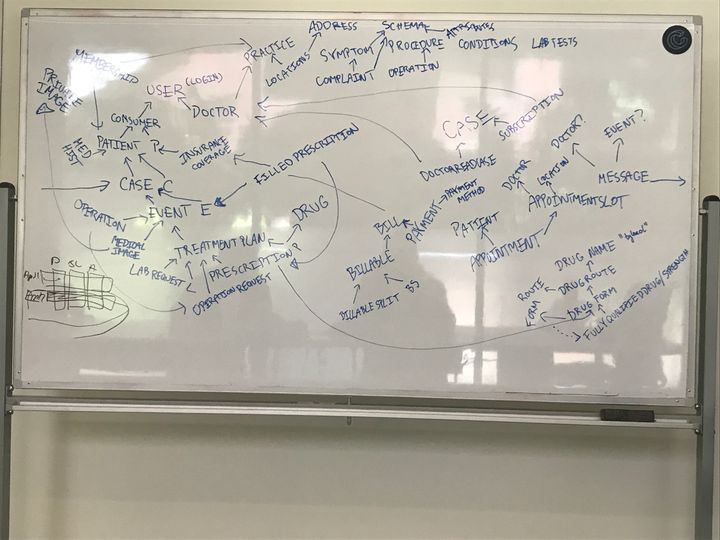 ADDRESS
SCHEMA
ATTRIBUTES
PRACTICE
SYMPTOM
PROCEDURE
CONDITIONS
LAB TESTS
LOCATIONS
COMPLAINT
OPERATION
MEMBERSHIP
PRIVATE
IMAGE
USER (LOGIN)
DOCTOR
CONSUMER
MED
HIST
PATIENT P
INSURANCE
COVERAGE
FILLED PRESCRIPTION
CASE
SUBSCRIPTION
DOCTOR?
EVENT?
CASE C
DOCTORREADCASE
PAYMENT
METHOD
DOCTOR
LOCATION
MESSAGE
OPERATION
EVENT E
DRUG
BILL
PAYMENT
PATIENT
APPOINTMENTSLOT
MEDICAL
IMAGE
TREATMENT PLAN
BILLABLE
APPOINTMENT
DRUG NAME
LAB REQUEST
PRESCRIPTION P
OPERATION REQUEST
BILLABLE SPLIT
ROUTE
DRUG ROUTE
FORM
DRUG FORM
FULLY QUALIFIED DRUG/STRENGTH